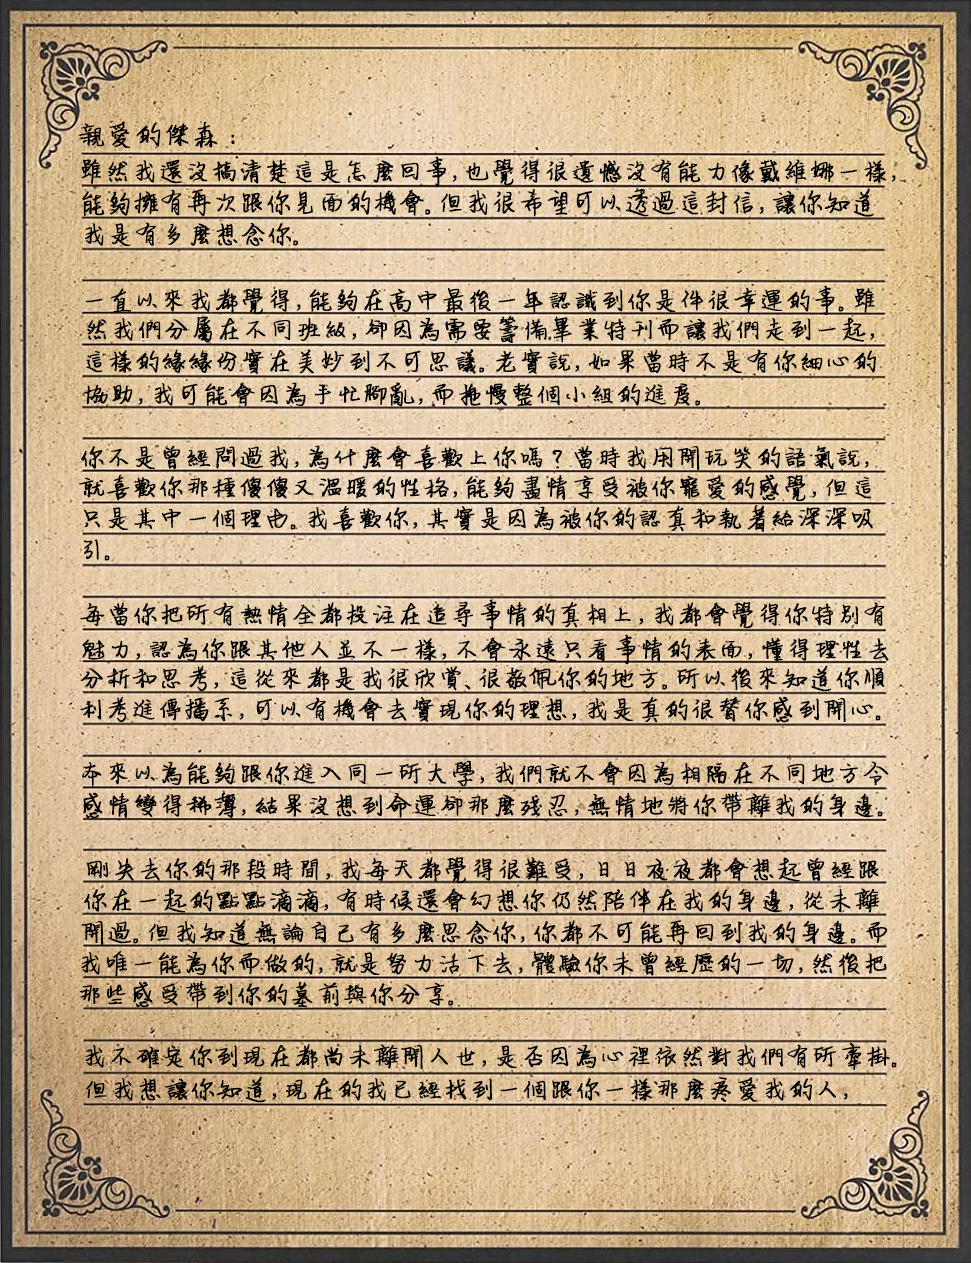 親愛的傑森：
雖然我還沒搞清楚這是怎麼回事，也覺得很遺憾沒有能力像戴維娜一樣，
能夠擁有再次跟你見面的機會。但我很希望可以透過這封信，讓你知道
我是有多麼想念你。
一直以來我都覺得，能夠在高中最後一年認識到你是件很幸運的事。雖
然我們分屬在不同班級，卻因為需要籌備畢業特刊而讓我們走到一起，
這樣的緣緣份實在美妙到不可思議。老實說，如果當時不是有你細心的
協助，我可能會因為手忙腳亂，而拖慢整個小組的進度。
你不是曾經問過我，為什麼會喜歡上你嗎？當時我用開玩笑的語氣說，
就喜歡你那種傻傻又溫暖的性格，能夠盡情享受被你寵愛的感覺，但這
只是其中一個理由。我喜歡你，其實是因為被你的認真和執著給深深吸
引。
每當你把所有熱情全都投注在追尋事情的真相上，我都會覺得你特別有
魅力，認為你跟其他人並不一樣，不會永遠只看事情的表面，懂得理性去
分析和思考，這從來都是我很欣賞、很敬佩你的地方。所以後來知道你順
利考進傳播系，可以有機會去實現你的理想，我是真的很替你感到開心。
本來以為能夠跟你進入同一所大學，我們就不會因為相隔在不同地方令
感情變得稀薄，結果沒想到命運卻那麼殘忍，無情地將你帶離我的身邊。
剛失去你的那段時間，我每天都覺得很難受，日日夜夜都會想起曾經跟
你在一起的點點滴滴，有時候還會幻想你仍然陪伴在我的身邊，從未離
開過。但我知道無論自己有多麼思念你，你都不可能再回到我的身邊。而
我唯一能為你而做的，就是努力活下去，體驗你未曾經歷的一切，然後把
那些感受帶到你的墓前與你分享。
我不確定你到現在都尚未離開人世，是否因為心裡依然對我們有所牽掛。
但我想讓你知道，現在的我已經找到一個跟你一樣那麼疼愛我的人，